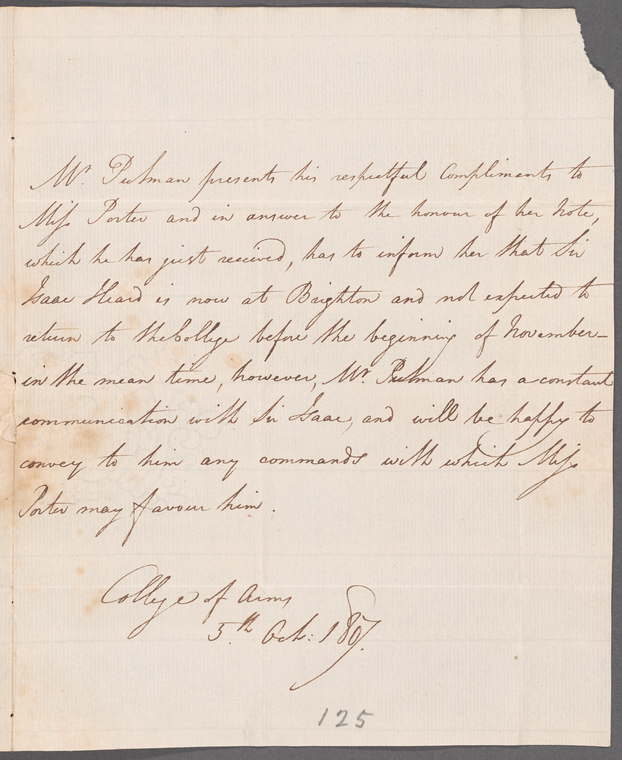 Mr. Pulman presents his respectful Compliments to
Miss Porter and in answer to the honour of her Note,
which he has just received, has to inform her that Sir
Isaac Heard is now at Brighton and not expected to
return to the College before the beginning of November—
in the mean time, however, Mr. Pulman has a constant
communication with Sir Isaac, and will be happy to
convey to him any commands with which Miss
Porter may favour him.
College of Arms
5.th Oct: 1807.
125